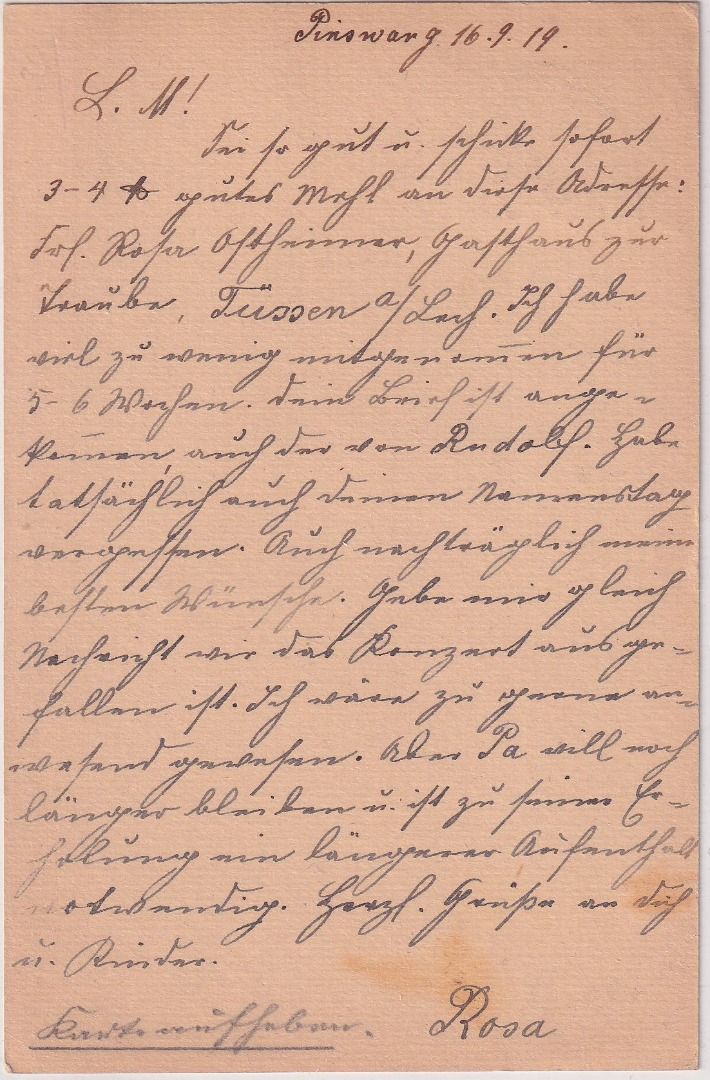 Pinswang 16.9.19.
L. M!
Sei so gut u. schicke sofort
3-4 ℔ gutes Mehl an diese Adresse:
Frl. Rosa Ostheimer, Gasthaus zur
Traube, Füssen a/Lech. Ich habe
viel zu wenig mitgenom̅en für
5-6 Wochen. Dein Brief ist ange-
kom̅en, auch der von Rudolf. Habe
tatsächlich auch deinen Namenstag
vergessen. Auch nachträglich meine
besten Wünsche. Gebe mir gleich
Nachricht wie das Konzert ausge-
fallen ist. Ich wäre zu gerne an-
wesend gewesen. Aber Pa will noch
länger bleiben u. ist zu seiner Er-
holung ein längerer Aufenthalt
notwendig. Herzl. Grüße an dich
u. Kinder.
Rosa
Karte aufheben.